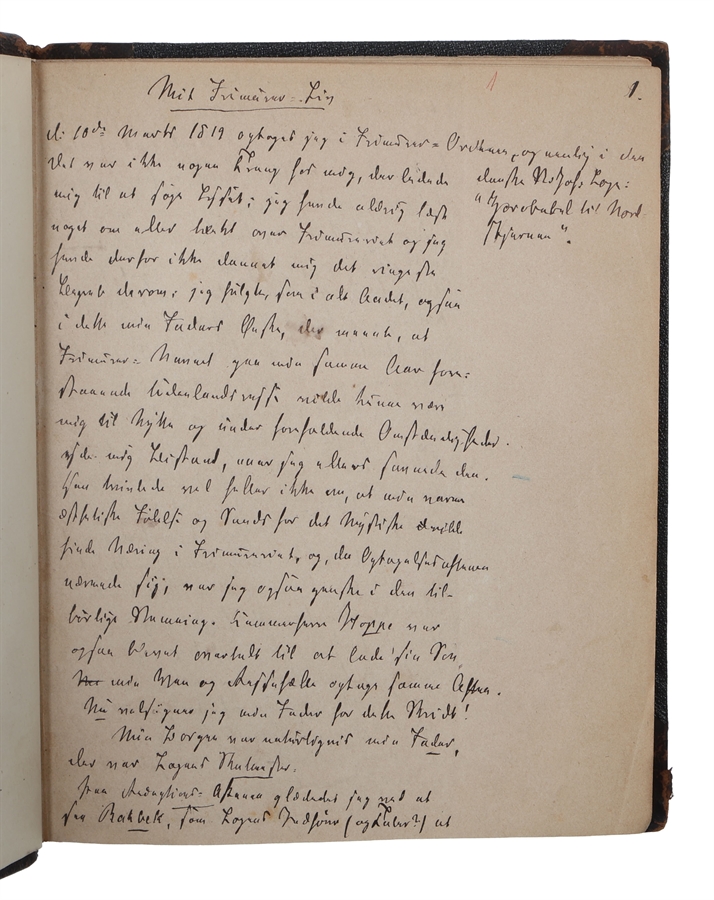 1.
1
Mit Frimurer=Liv
d: 10de Marts 1819 optoges jeg i Frimurer=Ordenen, og nemlig i den
danske St. Johs: Loge:
"Zorobabel til Nord-
stjernen".
Det var ikke nogen Trang hos mig, der ledede
mig til at søge Lyset; jeg havde aldrig læst
noget om eller tænkt over Frimureriet og jeg
havde derfor ikke dannet mig det ringeste
Begreb derom; jeg fulgte, som i alt Andet, ogsaa
i dette min Faders Ønske, der meente, at
Frimurer=Navnet paa min samme Aar fore=
staaende Udenlandsreise vilde kunne være
mig til Nytte og under forefaldende Omstændigheder
yde mig Bistand, naar jeg ellers savnede den.
Han tvivlede vel heller ikke om, at min varme
æsthetiske Følelse og Sands for det Mystiske vilde
finde Næring i Frimureriet, og, da Optagelsesaftenen
nærmede sig, var jeg ogsaa ganske i den til-
børlige Stemning. Kammerherre Hoppe var
ogsaa blevet overtalt til at lade sin Søn,
min Ven og Reisefælle optage samme Aften.
Nu velsigner jeg min Fader for dette Skridt!
Min Borgen var naturligvis min Fader,
der var Logens Skatmester.
Paa Receptions=Aftenen glædedes jeg ved at
see Rahbek, som Logens (og Taler?) at